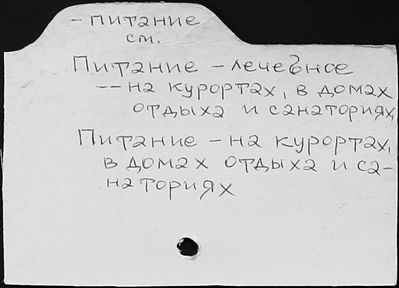 - питание
см.
Питание - лечебное
-- на курортах, в домах
отдыха и санаториях
Питание - на курортах,
в домах отдыха и са-
наториях